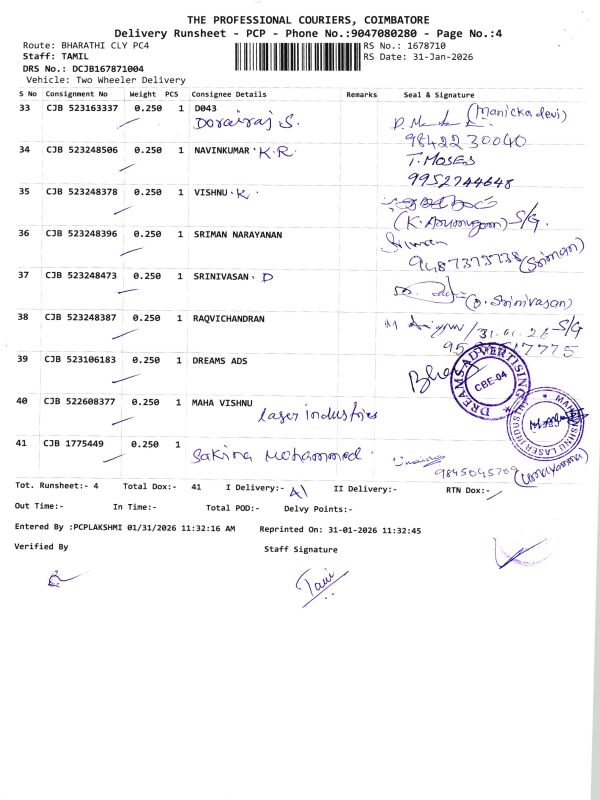 THE PROFESSIONAL COURIERS, COIMBATORE
Delivery Runsheet - PCP - Phone No.:9047080280 - Page No.:4
Route: BHARATHI CLY PC4 RS No.: 1678710
Staff: TAMIL RS Date: 31-Jan-2026
DRS No.: DCJB167871004
Vehicle: Two Wheeler Delivery
S No Consignment No Weight PCS Consignee Details Remarks Seal & Signature
33 CJB 523163337 0.250 1 D043 (Manickadevi)
Dorairaj S.
9842230040
34 CJB 523248506 0.250 1 NAVINKUMAR . K.R. T. MOSES
9952744648
35 CJB 523248378 0.250 1 VISHNU . K.
(K. Arumugam) S/G.
36 CJB 523248396 0.250 1 SRIMAN NARAYANAN Sriman
9487373738 (Sriman)
37 CJB 523248473 0.250 1 SRINIVASAN . D
(D. Srinivasan)
38 CJB 523248387 0.250 1 RAQVICHANDRAN S/G
39 CJB 523106183 0.250 1 DREAMS ADS
DREAMS ADVERTISING
CBE-04
40 CJB 522608377 0.250 1 MAHA VISHNU
laser industries
41 CJB 1775449 0.250 1
Sakina Mohammed.
Tot. Runsheet:- 4 Total Dox:- 41 I Delivery:- 41 II Delivery:- RTN Dox:-
Out Time:- In Time:- Total POD:- Delvy Points:-
Entered By :PCPLAKSHMI 01/31/2026 11:32:16 AM Reprinted On: 31-01-2026 11:32:45
Verified By Staff Signature